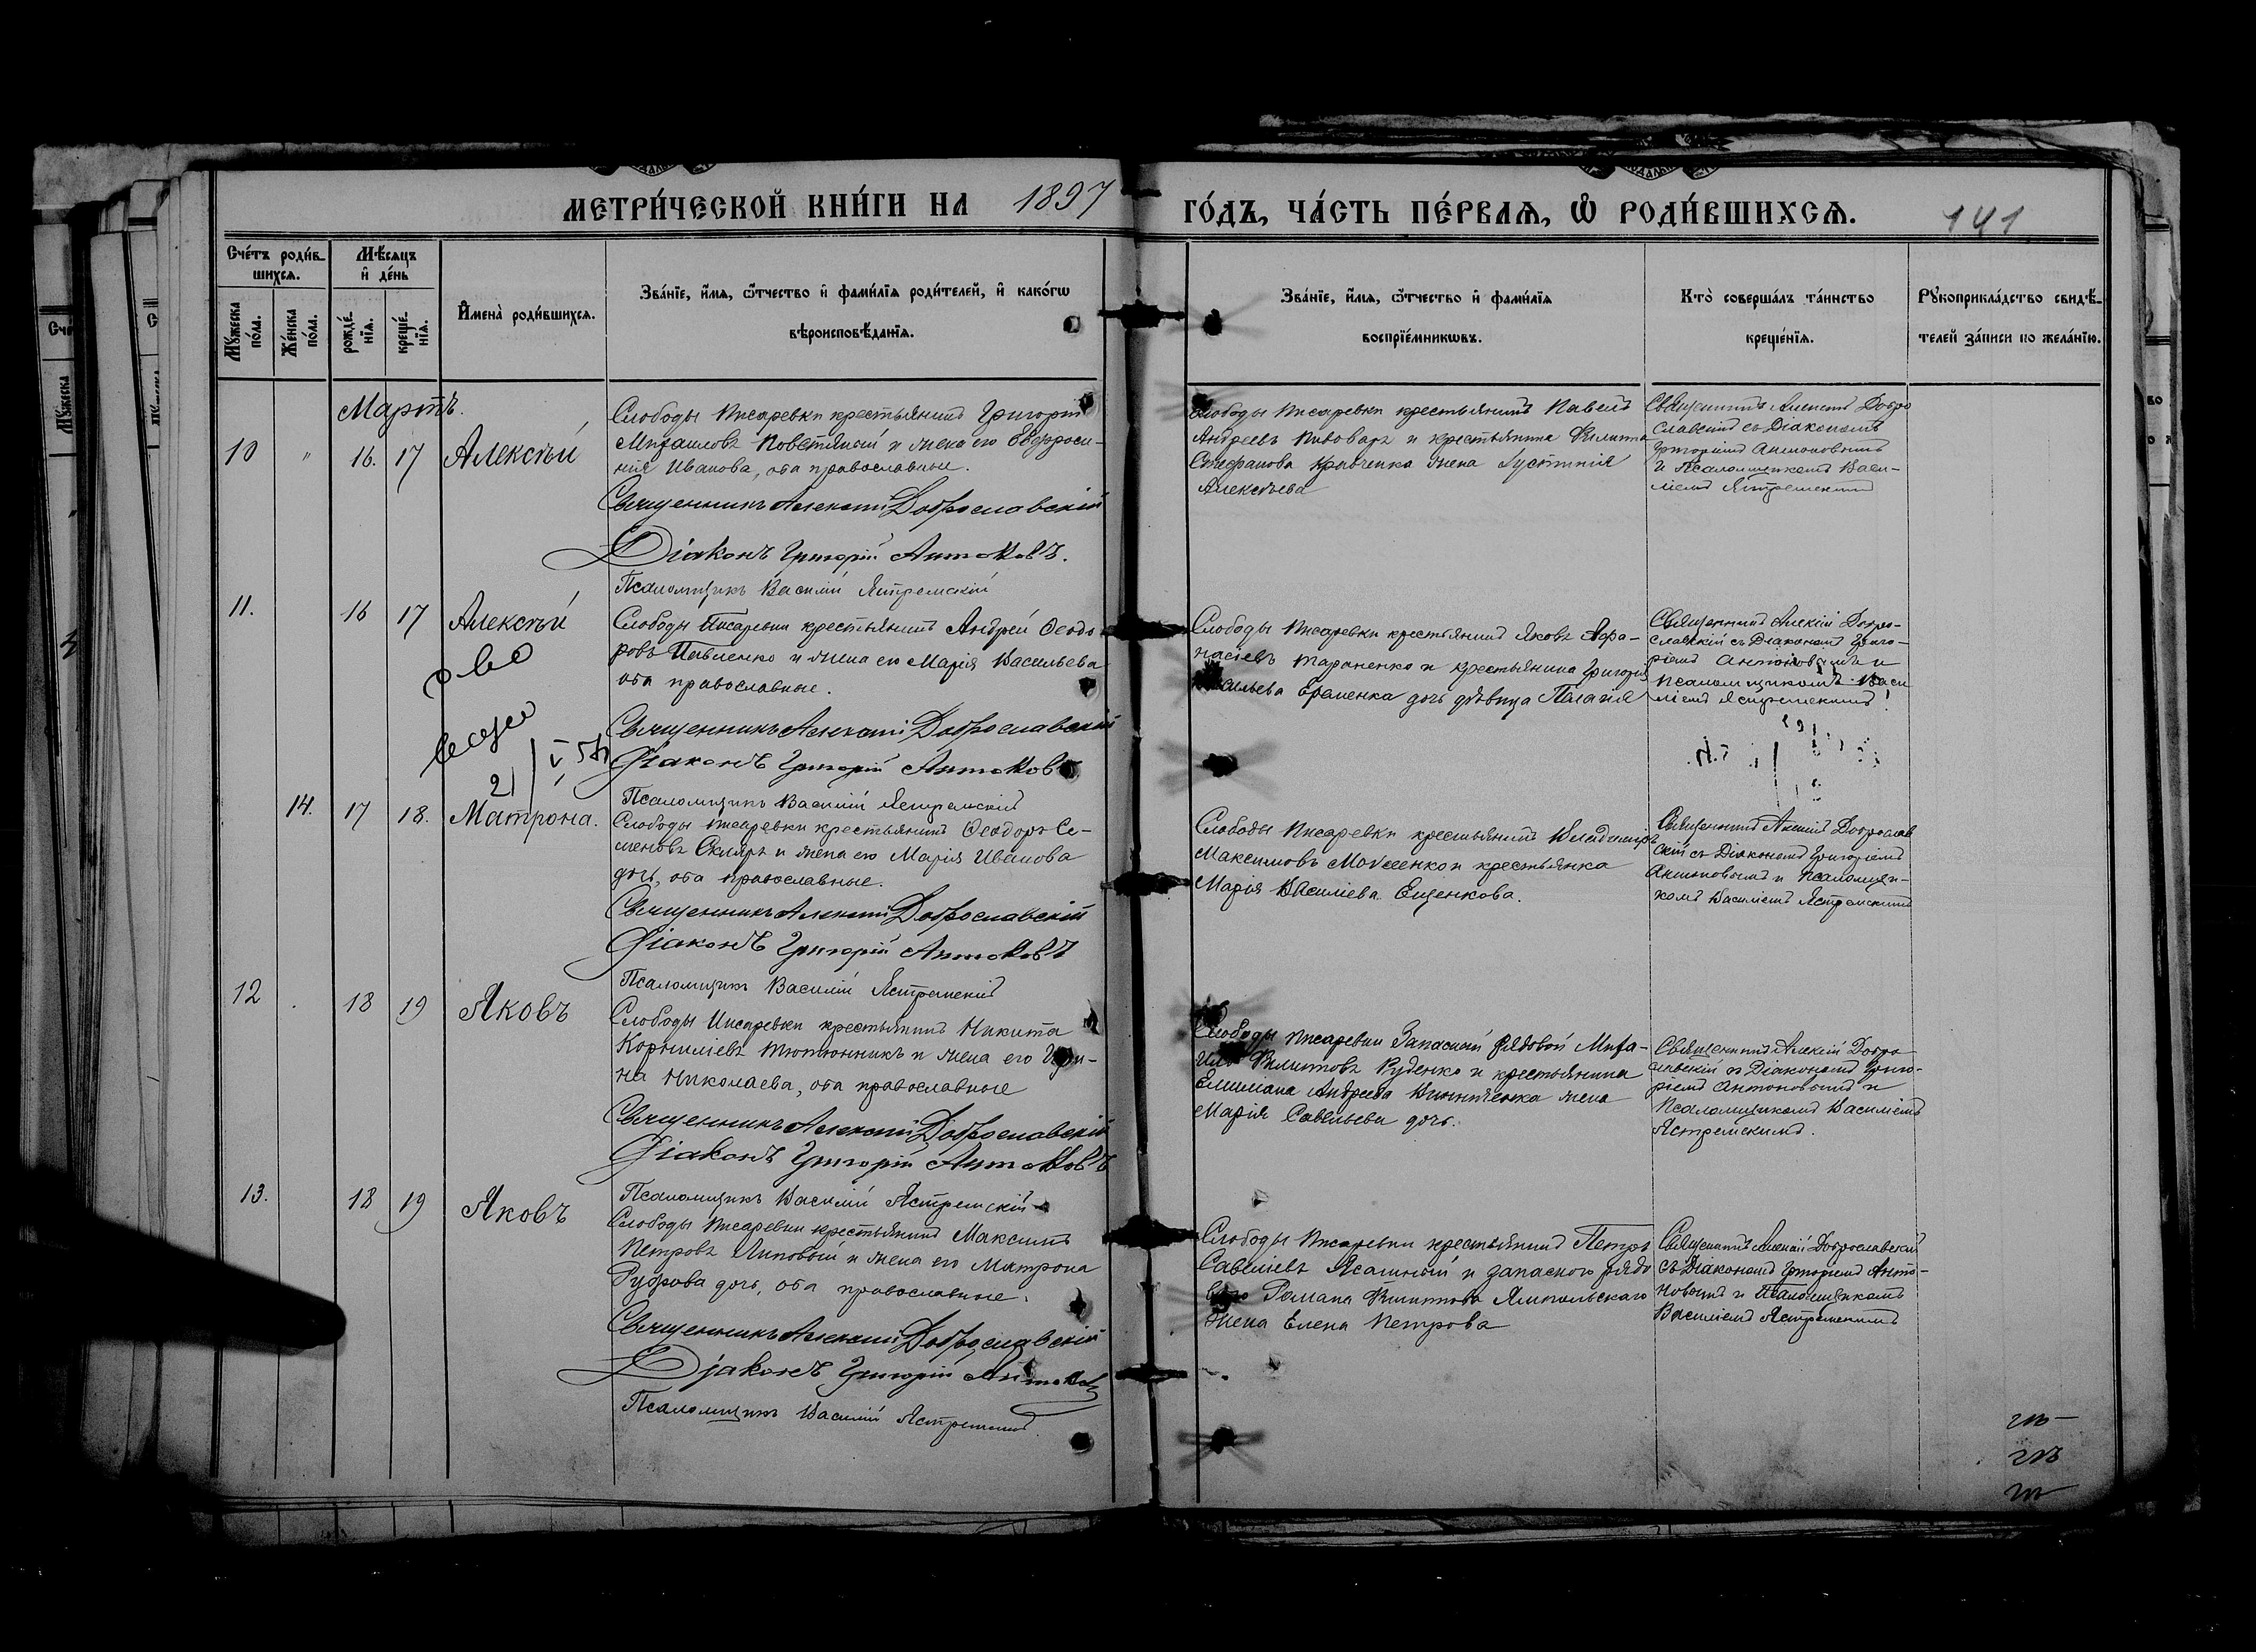 МЕТРИ́ЧЕСКОЙ КНИ́ГИ НА 1897
ГО́ДЪ, ЧА́СТЬ ПЕ́РВАЯ, Ѽ РОДИ́ВШИХСЯ.
141
Сче́тъ роди́в-
шихся.
Мѣ́сяцъ
и҆ де́нь
Му́жеска
по́ла.
Же́нска
по́ла.
рожде́-
нїя.
креще́-
нїя.
И҆мена̀ роди́вшихся.
Зва́нїе, и҆́мя, ѻ҆́тчество и҆ фами́лїя роди́телей, и҆ како́гѡ
вѣроисповѣ́данїя.
Зва́нїе, и҆́мя, ѻ҆́тчество и҆ фами́лїя
воспрїе́мникѡвъ.
Кто̀ соверша́лъ та́инство
креще́нїя.
Рꙋкоприкла́дство свидѣ́-
телей за́писи по жела́нїю.
Мартъ.
10 " 16. 17 Алексѣй
Слободы Писаревки крестьянинъ Григорій
Михаиловъ и жена его Евфроси-
нія Иванова, оба православные.
Священникъ Алексій Доброславскій
Діаконъ Григорій Антоновъ.
Псаломщикъ Василій Ястремскій
Слободы Писаревки крестьянинъ Павелъ
Андреевъ Пивоваръ и крестьянина Филиппа
Стефанова Кравченка жена Іустинія
Алексѣева
Священникъ Алексій Добро
славскій съ Діакономъ
Григоріемъ Антоновымъ
и Псаломщикомъ Васи-
ліемъ Ястремскимъ
11. 16 17 Алексѣй
21
Слободы Писаревки крестьянинъ Андрей Ѳеодо
ровъ Павленко и жена его Марія Васильева
оба православные.
Священникъ Алексій Доброславскій
Діаконъ Григорій Антоновъ
Псаломщикъ Василій Ястремскій
Слободы Писаревки крестьянинъ Яковъ Аѳа-
насіевъ Тараненко и крестьянина Григорія
Васильева Еременка дочь дѣвица Пелагія
Священникъ Алексій Добро-
славскій съ Діакономъ Григо-
ріемъ Антоновымъ и
Псаломщикомъ Васи
ліемъ Ястремскимъ
14. 17 18. Матрона.
Слободы Писаревки крестьянинъ Ѳеодоръ Се-
меновъ Скляръ и жена его Марія Иванова
дочь, оба православные.
Священникъ Алексій Доброславскій
Діаконъ Григорій Антоновъ
Псаломщикъ Василій Ястремскій
Слободы Писаревки крестьянинъ Владиміръ
Максимовъ Моисеенко и крестьянка
Марія Василіева Ещенкова.
Священникъ Алексій Доброслав
скій съ Діакономъ Григоріемъ
Антоновымъ и Псаломщи-
комъ Василіемъ Ястремскимъ
12 . 18 19 Яковъ
Слободы Писаревки крестьянинъ Никита
Корниліевъ Тютюнникъ и жена его Ири-
на Николаева, оба православные
Священникъ Алексій Доброславскій
Діаконъ Григорій Антоновъ
Псаломщикъ Василій Ястремскій
Слободы Писаревки Запасный рядовой Миха-
илъ Филипповъ Руденко и крестьянина
Емиліана Андреева жена
Марія Савельева дочь.
Священникъ Алексій Добро
славскій съ Діакономъ Григо-
ріемъ Антоновымъ и
Псаломщикомъ Василіемъ
Ястремскимъ.
13. 18 19 Яковъ
Слободы Писаревки крестьянинъ Максимъ
Петровъ Липовый и жена его Матрона
Руфова дочь, оба православные.
Священникъ Алексій Доброславскій
Діаконъ Григорій Антоновъ
Псаломщикъ Василій Ястремскій
Слободы Писаревки крестьянинъ Петръ
Савеліевъ и запаснаго рядо
ваго Романа Филиппова Ямпольскаго
жена Елена Петрова
Священникъ Алексій Доброславскій
съ Діакономъ Григоріемъ Анто-
новымъ и Псаломщикомъ
Василіемъ Ястремскимъ